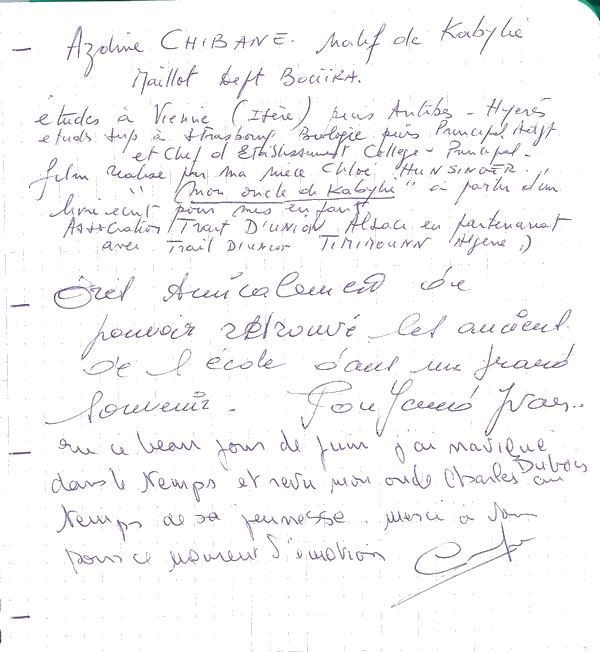 Azdine CHIBANE. Natif de Kabylie
Maillot Dept BOUIRA.
études à Vienne (Isère) puis Antibes - Hyeres
etudes sup à Strasbourg Biologie puis Principal Adjt
et Chef d'Etablissement College - Principal -
film realisé par ma nièce Chloé HUNSINGER.
"mon oncle de Kabylie" à partir d'un
livre ecrit pour mes enfants
Association Trait D'UNION Alsace en partenariat
avec Trait D'union TIMIMOUNN Algerie :)
très Amicalement de
pouvoir retrouvé les ancient
de l'école dans un grand
Souvenir.
en ce beau jour de juin j'ai navigué
dans le temps et revu mon oncle Charles Dubois au
temps de sa jeunesse. merci à
pour ce moment d'émotion